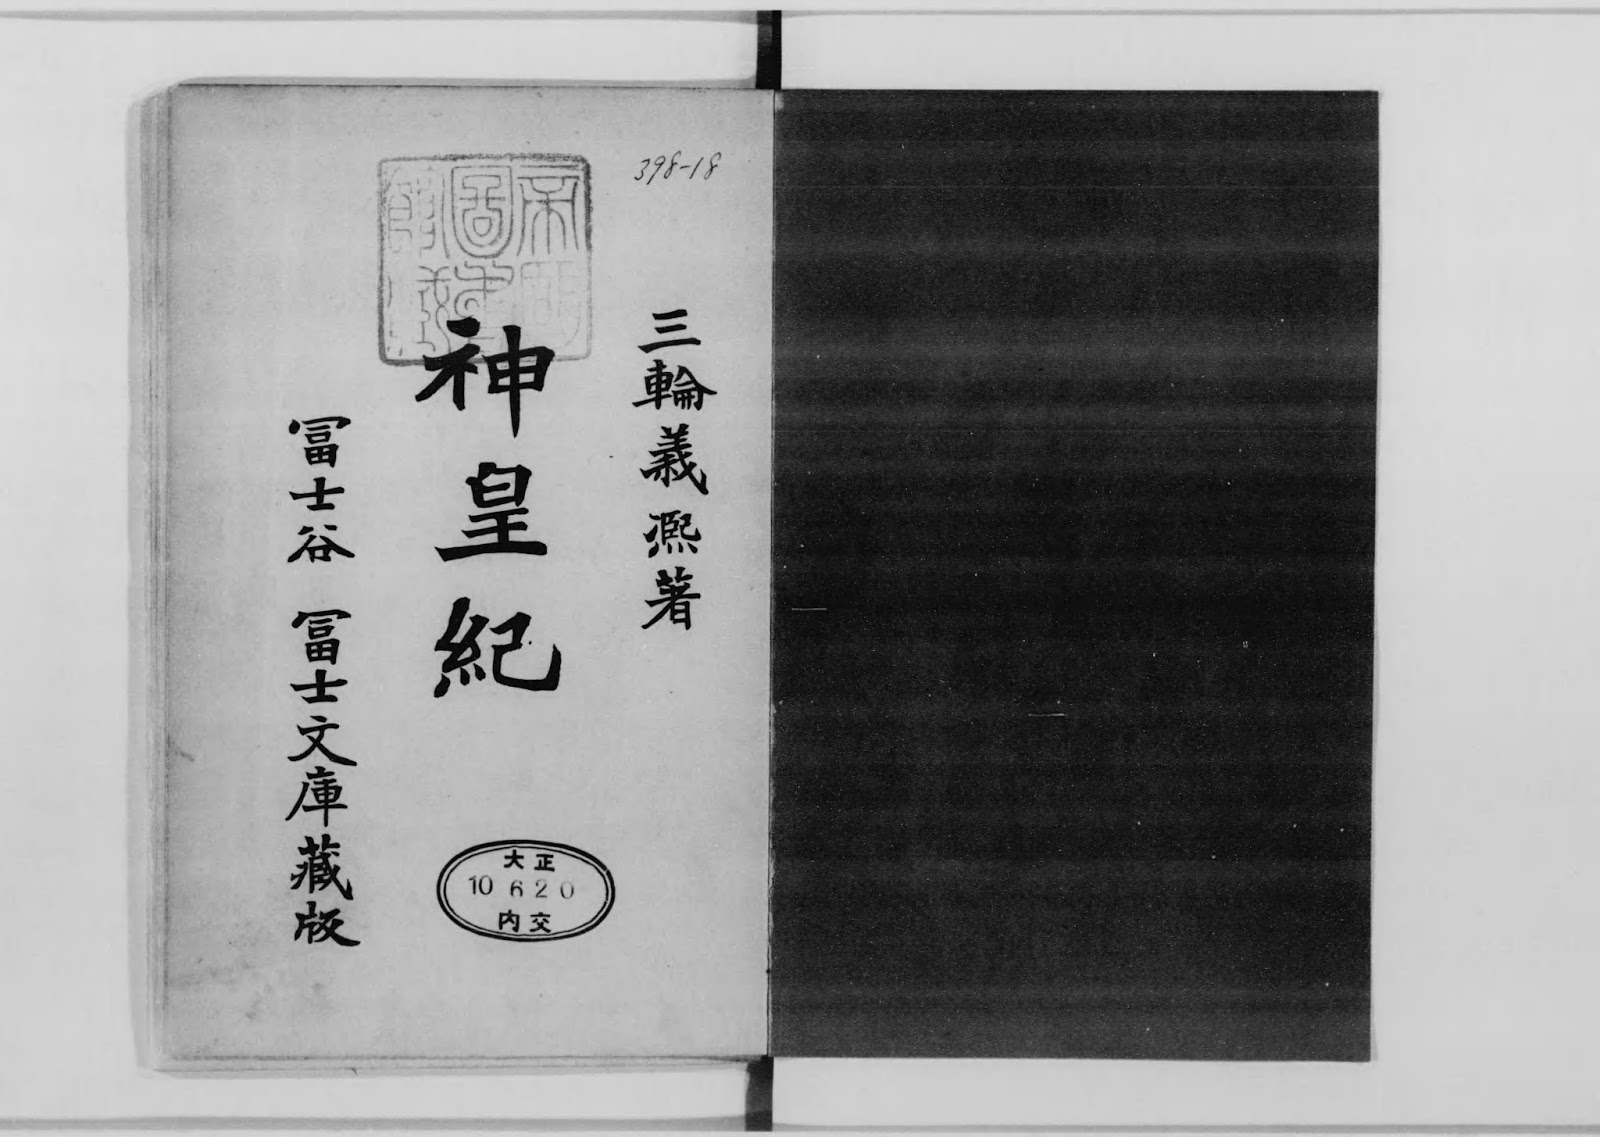 398-18
三輪義熈著
神皇紀
冨士谷 冨士文庫藏版
帝國圖書館藏
大正
10 6 20
内交